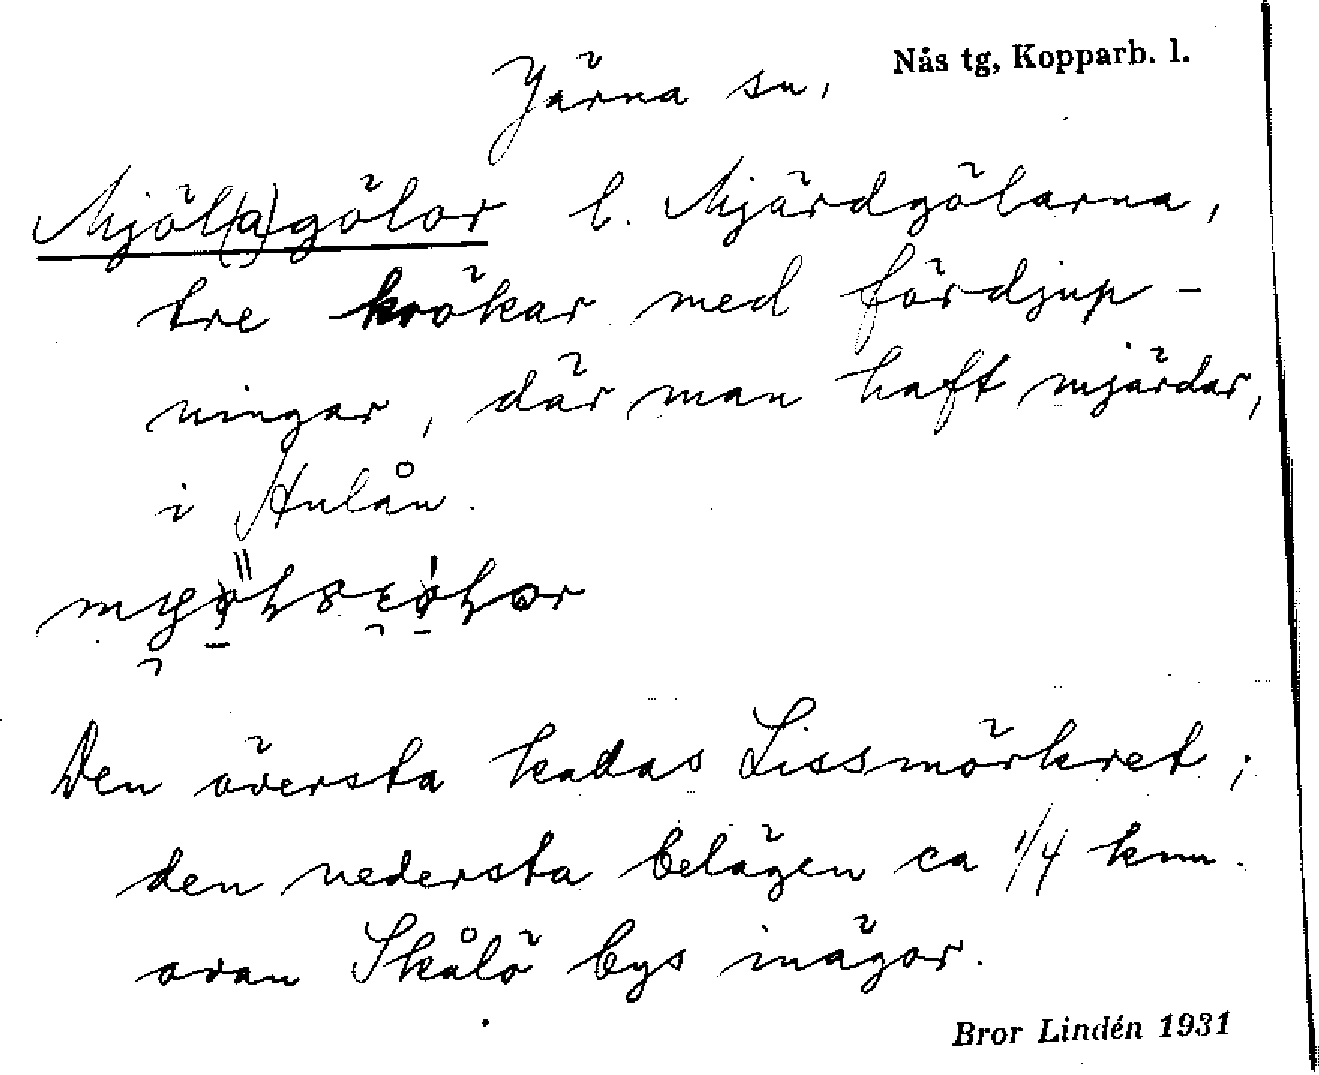 Nås tg, Kopparb. l.
Järna sn,
Mjöl(a)gölor l. Mjärdgölarna,
tre krökar med fördjup-
ningar, där man haft mjärdar,
i Hulån.
Den översta kallas Lissmörkret;
den nedersta belägen ca 1/4 km.
ovan Skålö bys inägor.
Bror Lindén 1931